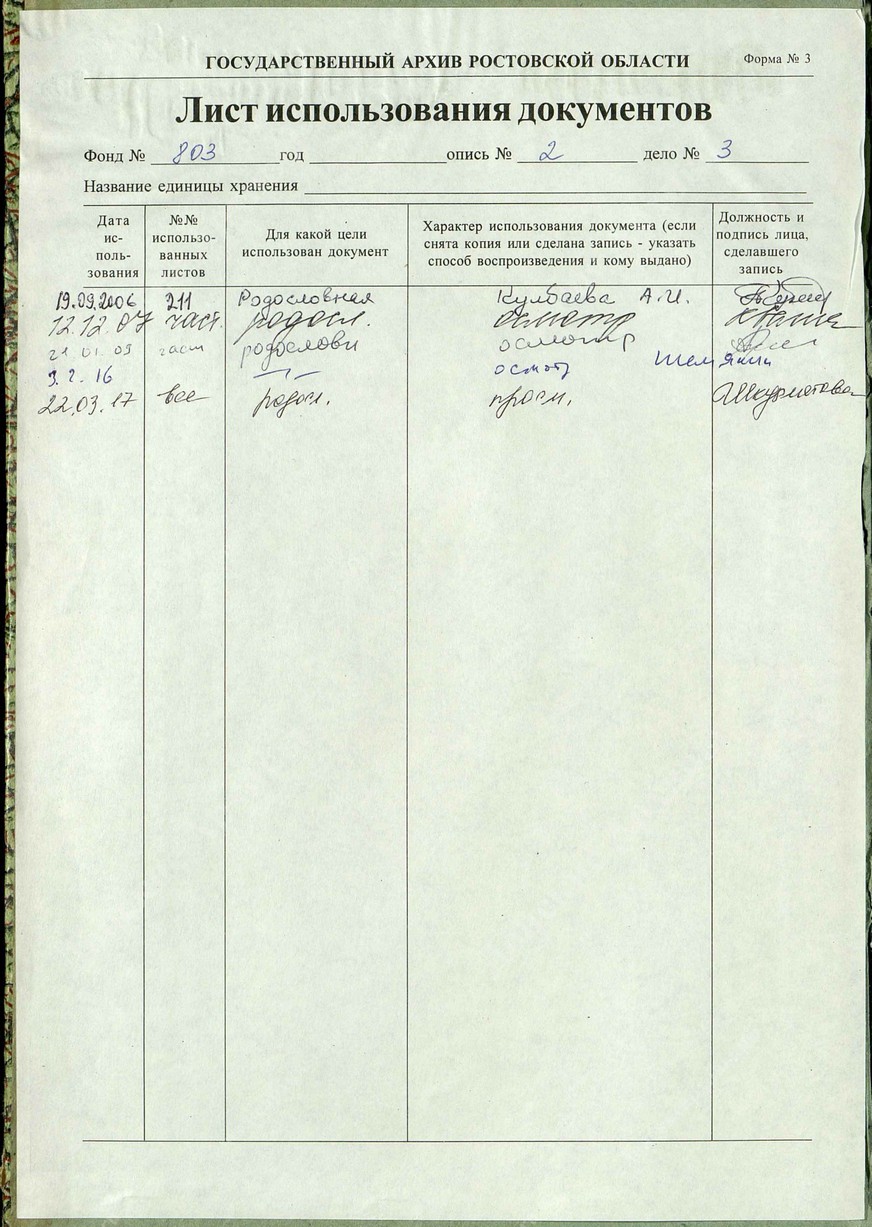 ГОСУДАРСТВЕННЫЙ АРХИВ РОСТОВСКОЙ ОБЛАСТИ Форма № 3
Лист использования документов
Фонд № 803 год опись № 2 дело № 3
Название единицы хранения
Дата ис-поль-зования
№№ использо-ванных листов
Для какой цели использован документ
Характер использования документа (если снята копия или сделана запись - указать способ воспроизведения и кому выдано)
Должность и подпись лица, сделавшего запись
19.09.2006 211 Родословная Кулбаева А.И.
12.12.07 част. родосл. осмотр
21 01 09 част родослови осмотр
3.2.16 осмотр
22.03.17 все родосл. просм.